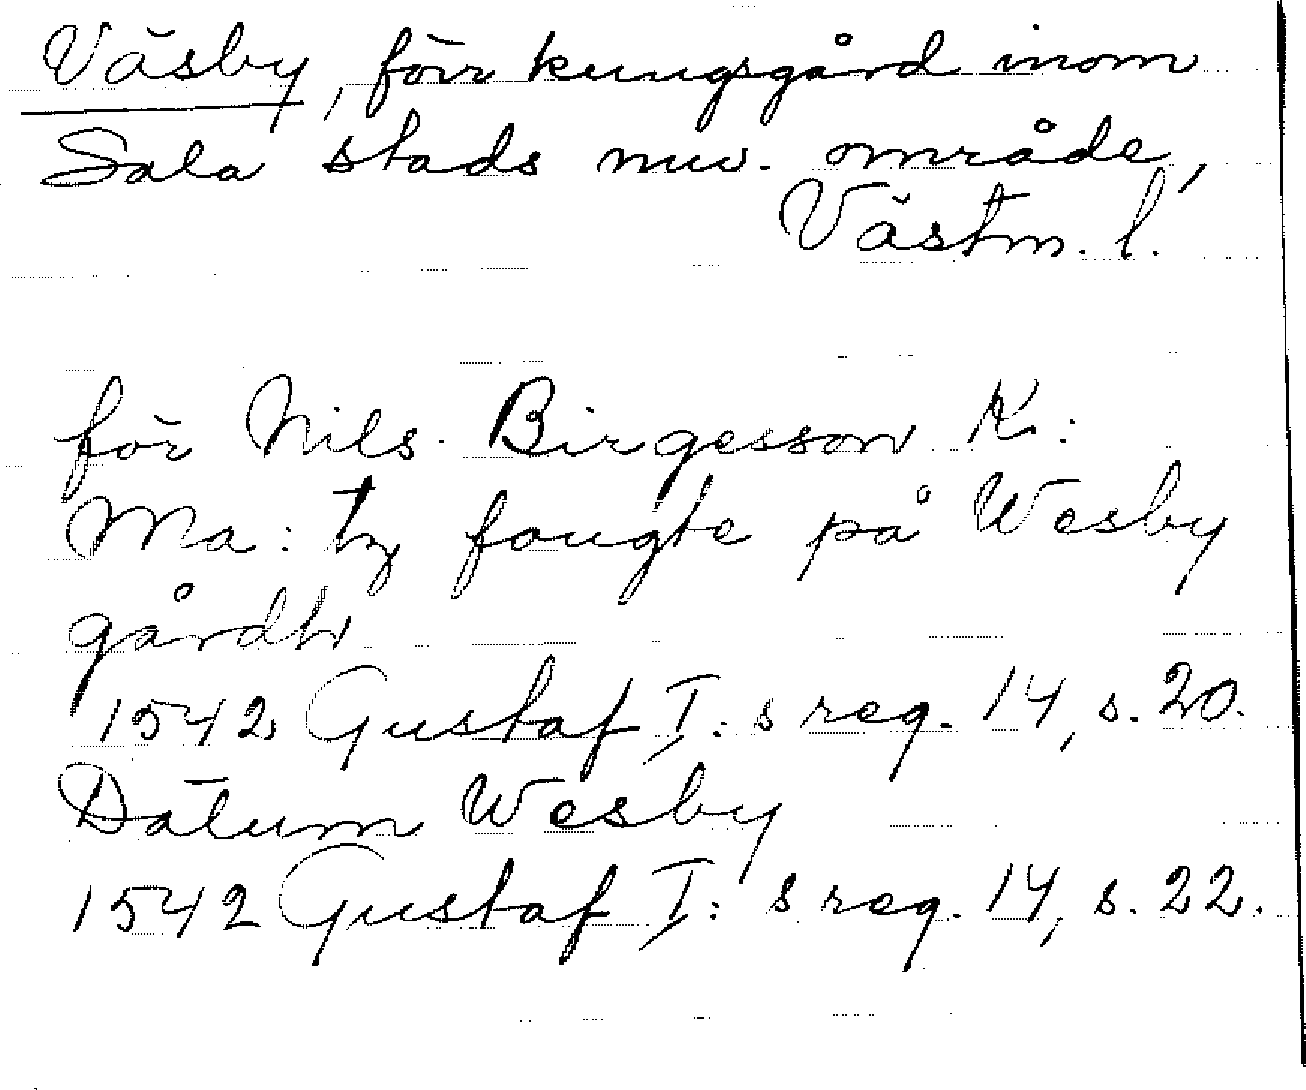 Väsby, förr kungsgård inom
Sala stads nuv. område,
Västm. l.
för Nils Birgesson K:
Ma: tz fougte på Wesby
gårdh
1542 Gustaf I:s reg. 14, s. 20.
Datum Wesby
1542 Gustaf I:s reg. 14, s. 22.